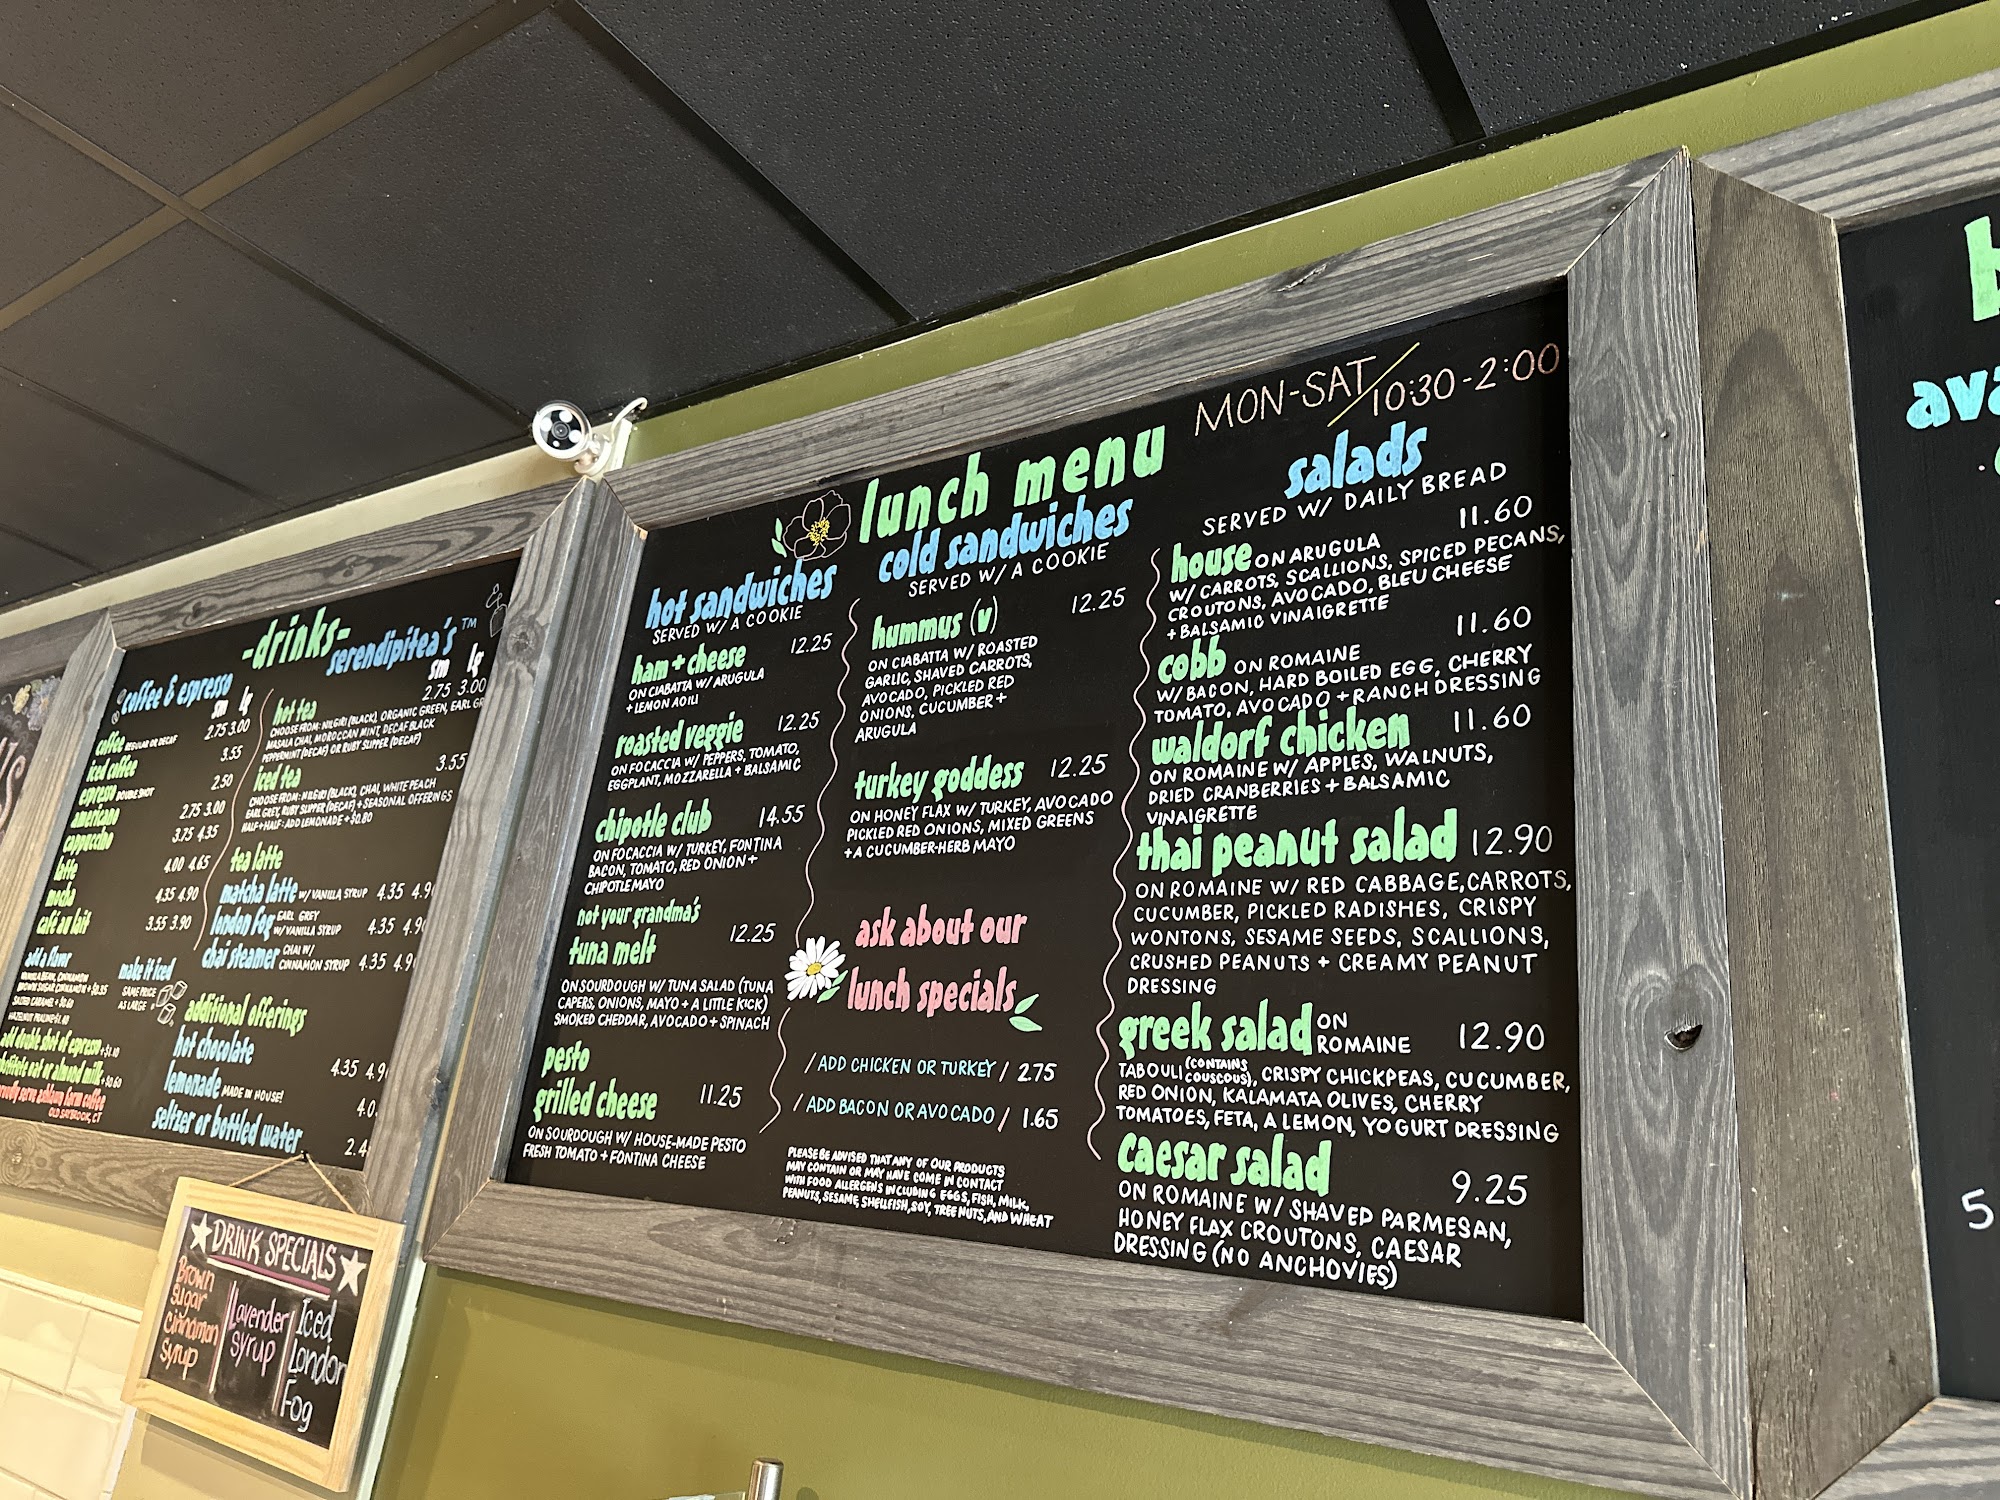 -drinks-
coffee & espresso
sm lg
coffee REGULAR OR DECAF 2.75 3.00
iced coffee 3.55
espresso DOUBLE SHOT 2.50
americano 2.75 3.00
cappuccino 3.75 4.35
latte 4.00 4.65
mocha 4.35 4.90
café au lait 3.55 3.90
add a flavor
VANILLA BEAN, CINNAMON
BROWN SUGAR CINNAMON +$0.35
SALTED CARAMEL +$0.60
make it iced
SAME PRICE
AS LARGE +
add double shot of espresso +$1.10
oat or almond milk +$0.60
proudly serve ashlawn farm coffee
OLD SAYBROOK, CT
serendipitea's™
sm lg
2.75 3.00
hot tea
CHOOSE FROM: NILGIRI (BLACK), ORGANIC GREEN, EARL
MASALA CHAI, MOROCCAN MINT, DECAF BLACK
PEPPERMINT (DECAF) OR RUBY SLIPPER (DECAF)
iced tea 3.55
CHOOSE FROM: NILGIRI (BLACK), CHAI, WHITE PEACH
EARL GREY, RUBY SLIPPER (DECAF) + SEASONAL OFFERINGS
HALF + HALF: ADD LEMONADE + $0.80
tea latte
matcha latte W/ VANILLA SYRUP 4.35 4.9
london fog EARL GREY W/ VANILLA SYRUP 4.35 4.9
chai steamer CHAI W/ CINNAMON SYRUP 4.35 4.9
additional offerings
hot chocolate 4.35 4.9
lemonade MADE IN HOUSE! 4.0
seltzer or bottled water 2.4
★DRINK SPECIALS★
Brown
Sugar
Cinnamon
Syrup
Lavender
syrup
Iced
London
Fog
lunch menu
MON-SAT/10:30-2:00
hot sandwiches
SERVED W/ A COOKIE
ham + cheese 12.25
ON CIABATTA W/ ARUGULA
+ LEMON AOILI
roasted veggie 12.25
ON FOCACCIA W/ PEPPERS, TOMATO,
EGGPLANT, MOZZARELLA + BALSAMIC
chipotle club 14.55
ON FOCACCIA W/ TURKEY, FONTINA
BACON, TOMATO, RED ONION +
CHIPOTLE MAYO
not your grandma's
tuna melt 12.25
ON SOURDOUGH W/ TUNA SALAD (TUNA
CAPERS, ONIONS, MAYO + A LITTLE KICK)
SMOKED CHEDDAR, AVOCADO + SPINACH
pesto
grilled cheese 11.25
ON SOURDOUGH W/ HOUSE-MADE PESTO
FRESH TOMATO + FONTINA CHEESE
cold sandwiches
SERVED W/ A COOKIE
hummus (v) 12.25
ON CIABATTA W/ ROASTED
GARLIC, SHAVED CARROTS,
AVOCADO, PICKLED RED
ONIONS, CUCUMBER +
ARUGULA
turkey goddess 12.25
ON HONEY FLAX W/ TURKEY, AVOCADO
PICKLED RED ONIONS, MIXED GREENS
+ A CUCUMBER-HERB MAYO
ask about our
lunch specials
/ADD CHICKEN OR TURKEY/ 2.75
/ADD BACON OR AVOCADO/ 1.65
PLEASE BE ADVISED THAT ANY OF OUR PRODUCTS
MAY CONTAIN OR MAY HAVE COME IN CONTACT
WITH FOOD ALLERGENS INCLUDING EGGS, FISH, MILK,
PEANUTS, SESAME, SHELLFISH, SOY, TREE NUTS, AND WHEAT
salads
SERVED W/ DAILY BREAD
11.60
house ON ARUGULA
W/ CARROTS, SCALLIONS, SPICED PECANS,
CROUTONS, AVOCADO, BLEU CHEESE
+ BALSAMIC VINAIGRETTE
11.60
cobb ON ROMAINE
W/ BACON, HARD BOILED EGG, CHERRY
TOMATO, AVOCADO + RANCH DRESSING
waldorf chicken 11.60
ON ROMAINE W/ APPLES, WALNUTS,
DRIED CRANBERRIES + BALSAMIC
VINAIGRETTE
thai peanut salad 12.90
ON ROMAINE W/ RED CABBAGE, CARROTS,
CUCUMBER, PICKLED RADISHES, CRISPY
WONTONS, SESAME SEEDS, SCALLIONS,
CRUSHED PEANUTS + CREAMY PEANUT
DRESSING
greek salad ON ROMAINE 12.90
TABOULI (CONTAINS COUSCOUS), CRISPY CHICKPEAS, CUCUMBER,
RED ONION, KALAMATA OLIVES, CHERRY
TOMATOES, FETA, A LEMON, YOGURT DRESSING
caesar salad 9.25
ON ROMAINE W/ SHAVED PARMESAN,
HONEY FLAX CROUTONS, CAESAR
DRESSING (NO ANCHOVIES)
ava
5